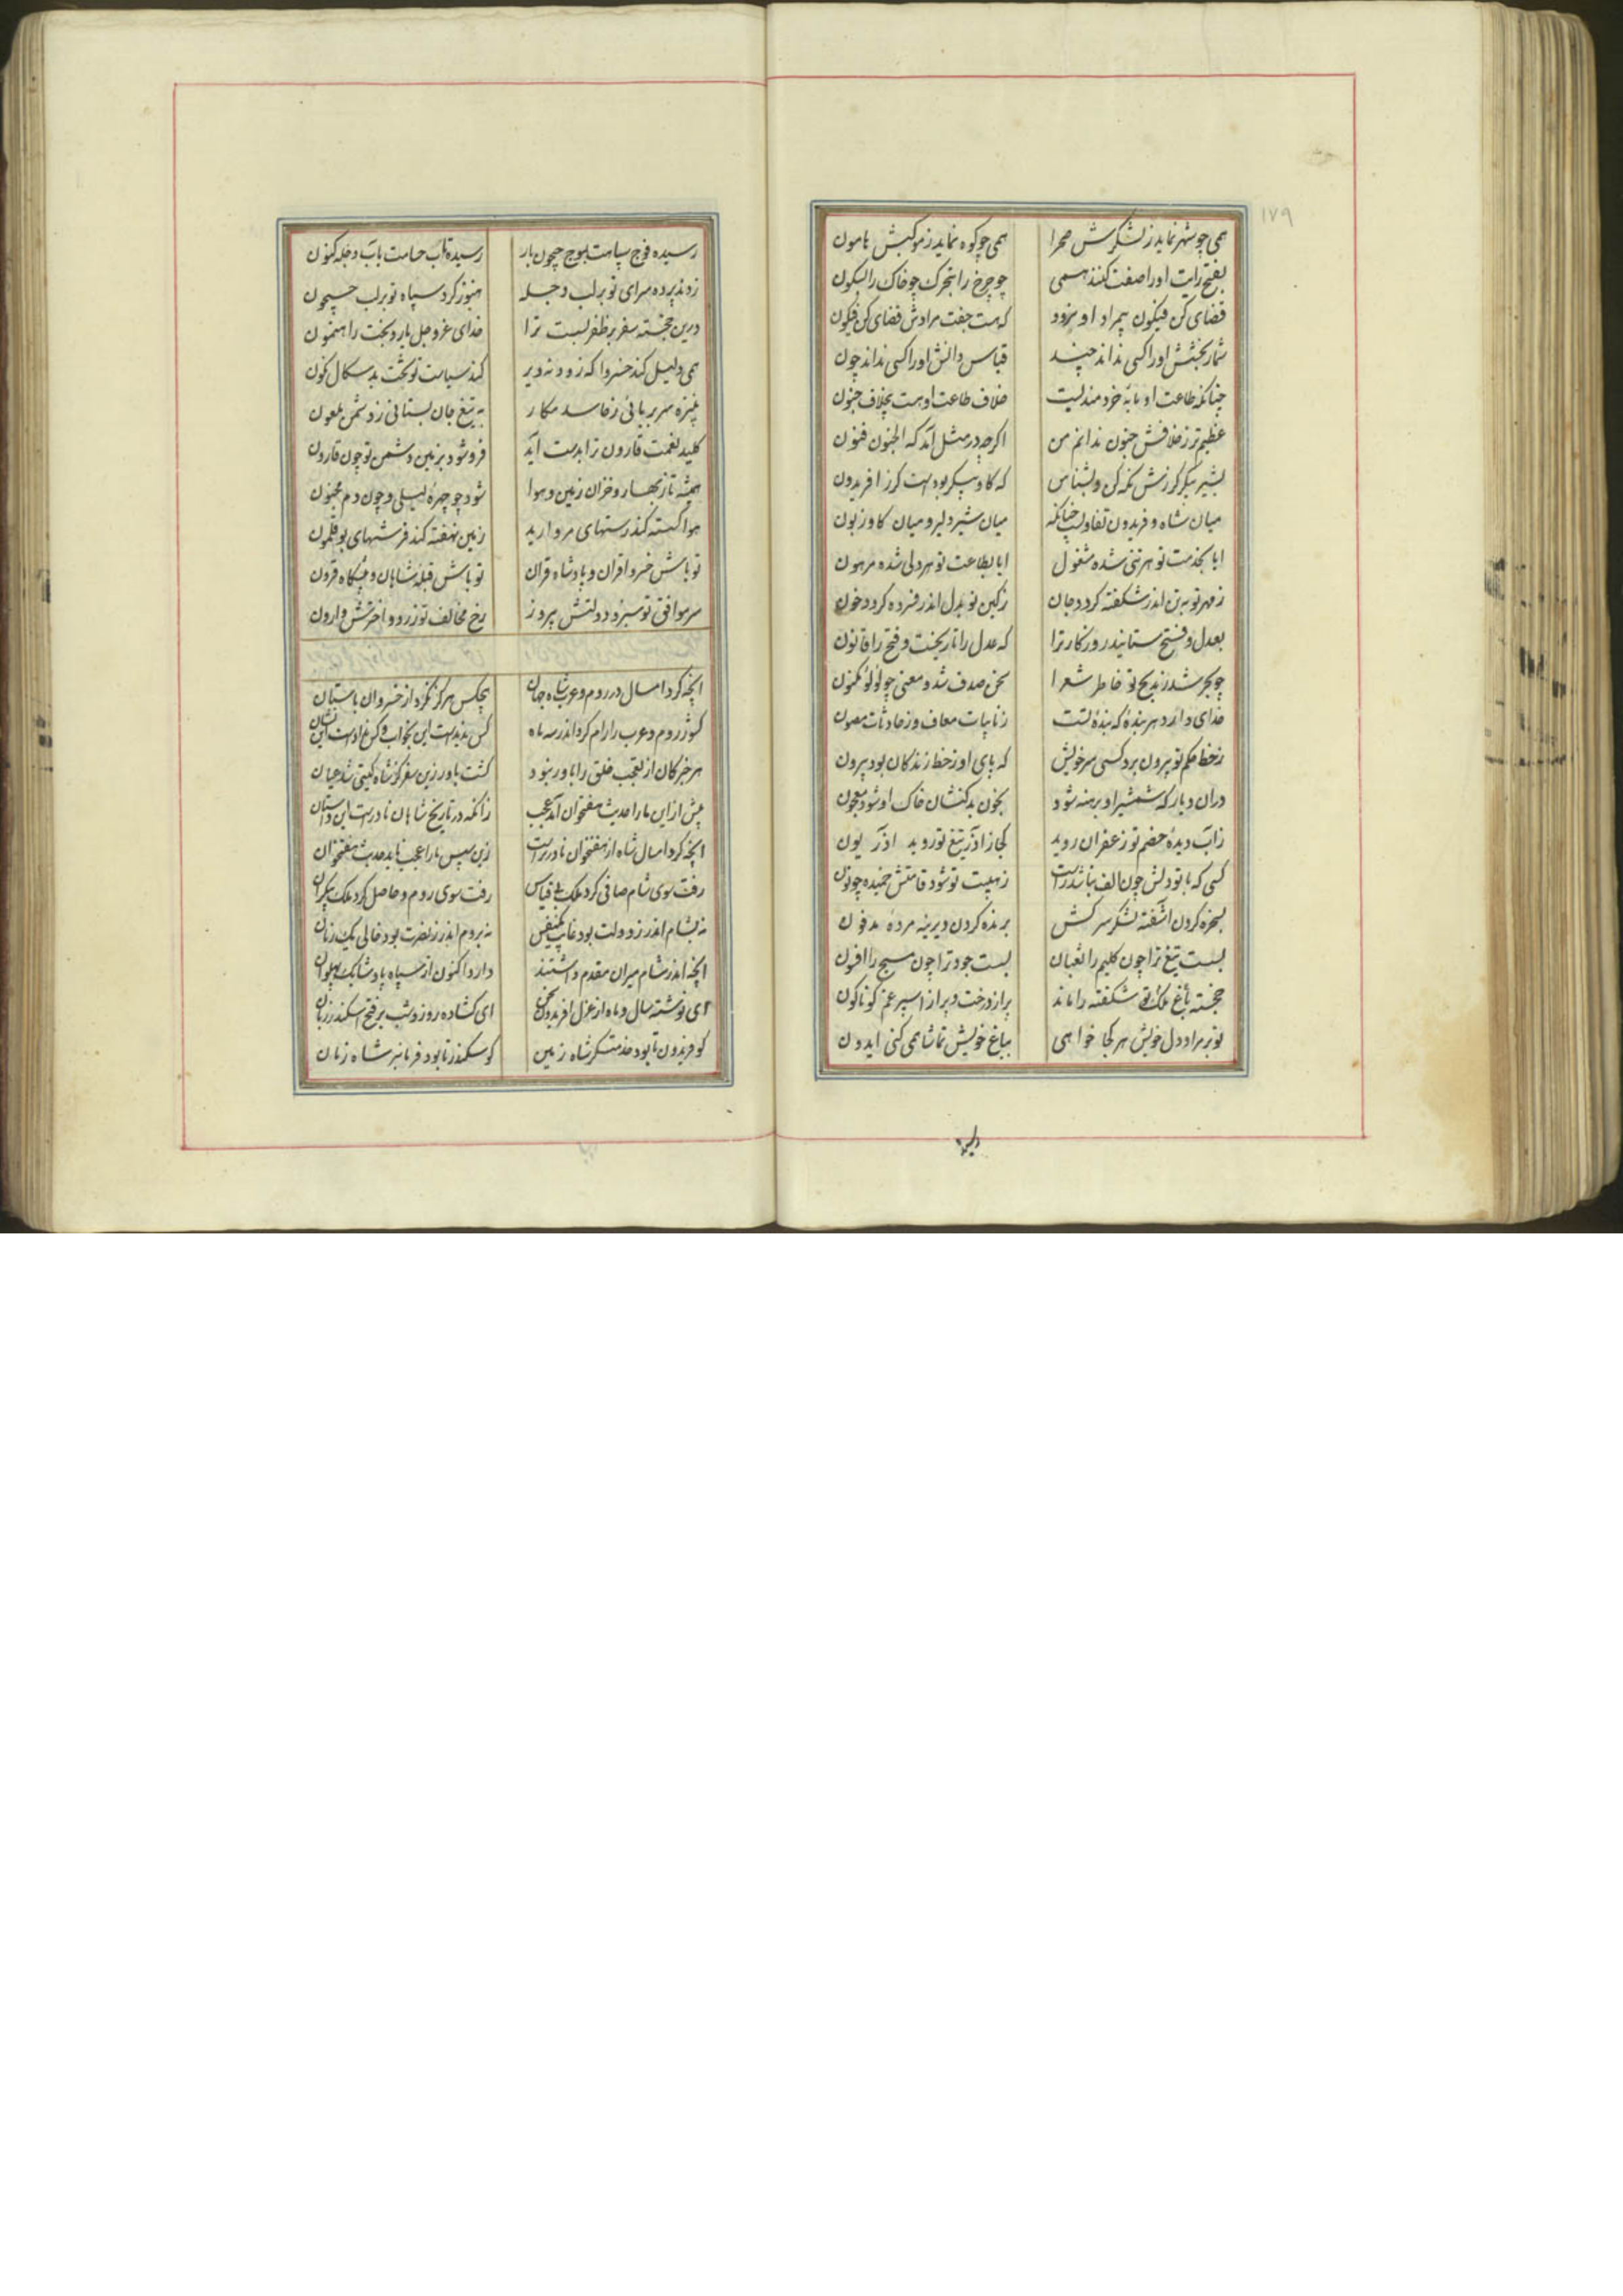 ۱۷۹
همی چو شهر نماید ز لشکرش صحرا همی چو کوه نماید ز موکبش هامون
بفتح رایت او را صفت کنند همی چو چرخ را بتحرک چو خاک را بسکون
قضای کن فیکون بر مراد او نرود که هست جفت مرادش قضای کن فیکون
شمار بخشش او را کسی نداند چند قیاس دانش او را کسی نداند چون
چنانکه طاعت او مایهٔ خردمندیست خلاف طاعت او هست بخلاف جنون
عظیم تر ز خلافش جنون ندانم من اگرچه در مثل آمد که الجنون فنون
بشیر پیکر گرزش نگه کن و بشناس که گاو پیکر بودست گرز افریدون
میان شاه و فریدون تفاوتست چنانکه میان شیر دلیر و میان گاو زبون
ایا بخدمت تو هر تنی شده مشغول ایا بطاعت تو هر دلی شده مرهون
ز مهر تو به تن اندر شکفته گردد جان ز کین تو بدل اندر فسرده گردد خون
بعدل و فتح ستایند روزگار ترا که عدل را تاریخست و فتح را قانون
چو بحر شد ز مدیح تو خاطر شعرا سخن صدف شد و معنی چو لؤلؤ مکنون
خدای دارد هر بندهٔ که بندهٔ تست ز نایبات معاف و ز حادثات مصون
ز خط حکم تو بیرون برد کسی سر خویش که پای او ز خط زندگان بود بیرون
دران دیار که شمشیر او برهنه شود بخون بدکنشان خاک او شود معجون
ز آب دیدهٔ خصم تو زعفران روید کجا ز آذر تیغ تو روید آذریون
کسی که با تو دلش چون الف نباشد راست ز هیبت تو شود قامتش خمیده چو نون
بسخره کردن آشفته لشکر سرکش بزنده کردن دیرینه مردهٔ مدفون
بست تیغ ترا چون کلیم را ثعبان بست جود ترا چون مسیح را افسون
خجسته باغ ملک تو شکفته را ماند پر از درخت و پر از اسپرغم گوناگون
تو بر مراد دل خویش هر کجا خواهی بباغ خویش تماشا همی کنی ایدون
رسیده
رسیده فوج سپاهت بموج جیحون بار رسیده تاب حسامت بآب دجله کنون
زدند پرده سرای تو بر لب دجله هنوز گرد سپاه تو بر لب جیحون
درین خجسته سفر بر ظفر لبست ترا خدای عز و جل یار و بخت راهنمون
همی دلیل کند خسروا که زود نه دیر کند سیاست تو تخت بدسگال نگون
بنیزه سر بربائی ز حاسد مکار به تیغ جان بستانی ز دشمن ملعون
کلید نعمت قارون ترا بدست آید فرو شود بزمین دشمن تو چون قارون
همیشه تا ز بهار و خزان زمین و هوا شود چو چهرهٔ لیلی و چون دم مجنون
هوا گسسته کند رستهای مروارید زمین نهفته کند فرشهای بوقلمون
تو باش خسرو اقران و پادشاه قران تو باش قبلهٔ شاهان و پیشگاه قرون
سر موافق تو سبز و دولتش پیروز رخ مخالف تو زرد و اخترش وارون
آنچه کرد امسال در روم و عرب شاه جهان هیچکس هرگز نکرد از خسروان باستان
کو ز روم و عرب را رام کرد اندر سه ماه کس ندیدست این بخواب و کس نداد است این نشان
هر خبر کان از تعجب خلق را باور نبود گشت باور زین سفر کز شاه گیتی شد عیان
پیش ازین ما را حدیث هفتخوان آمد عجب زانکه در تاریخ شاهان نادرست این داستان
آنچه کرد امسال شاه از هفتخوان نادرترست زین سپس ما را عجب ناید حدیث هفتخوان
رفت سوی شام صافی کرد ملک بی قیاس رفت سوی روم و حاصل کرد ملک بیکران
نه بشام اندر ز دولت بود غایب یکنفس نه بروم اندر ز نصرت بود خالی یک زمان
آنچه اندر شام میران مقدم داشتند دارد اکنون از سپاه پادشا یک پهلوان
ای نوشته سال و ماه از عزل افریدون سخن ای گشاده روز و شب بر فتح اسکندر زبان
کو فریدون تا بود خدمتگر شاه زمین کو سکندر تا بود فرمانبر شاه زمان